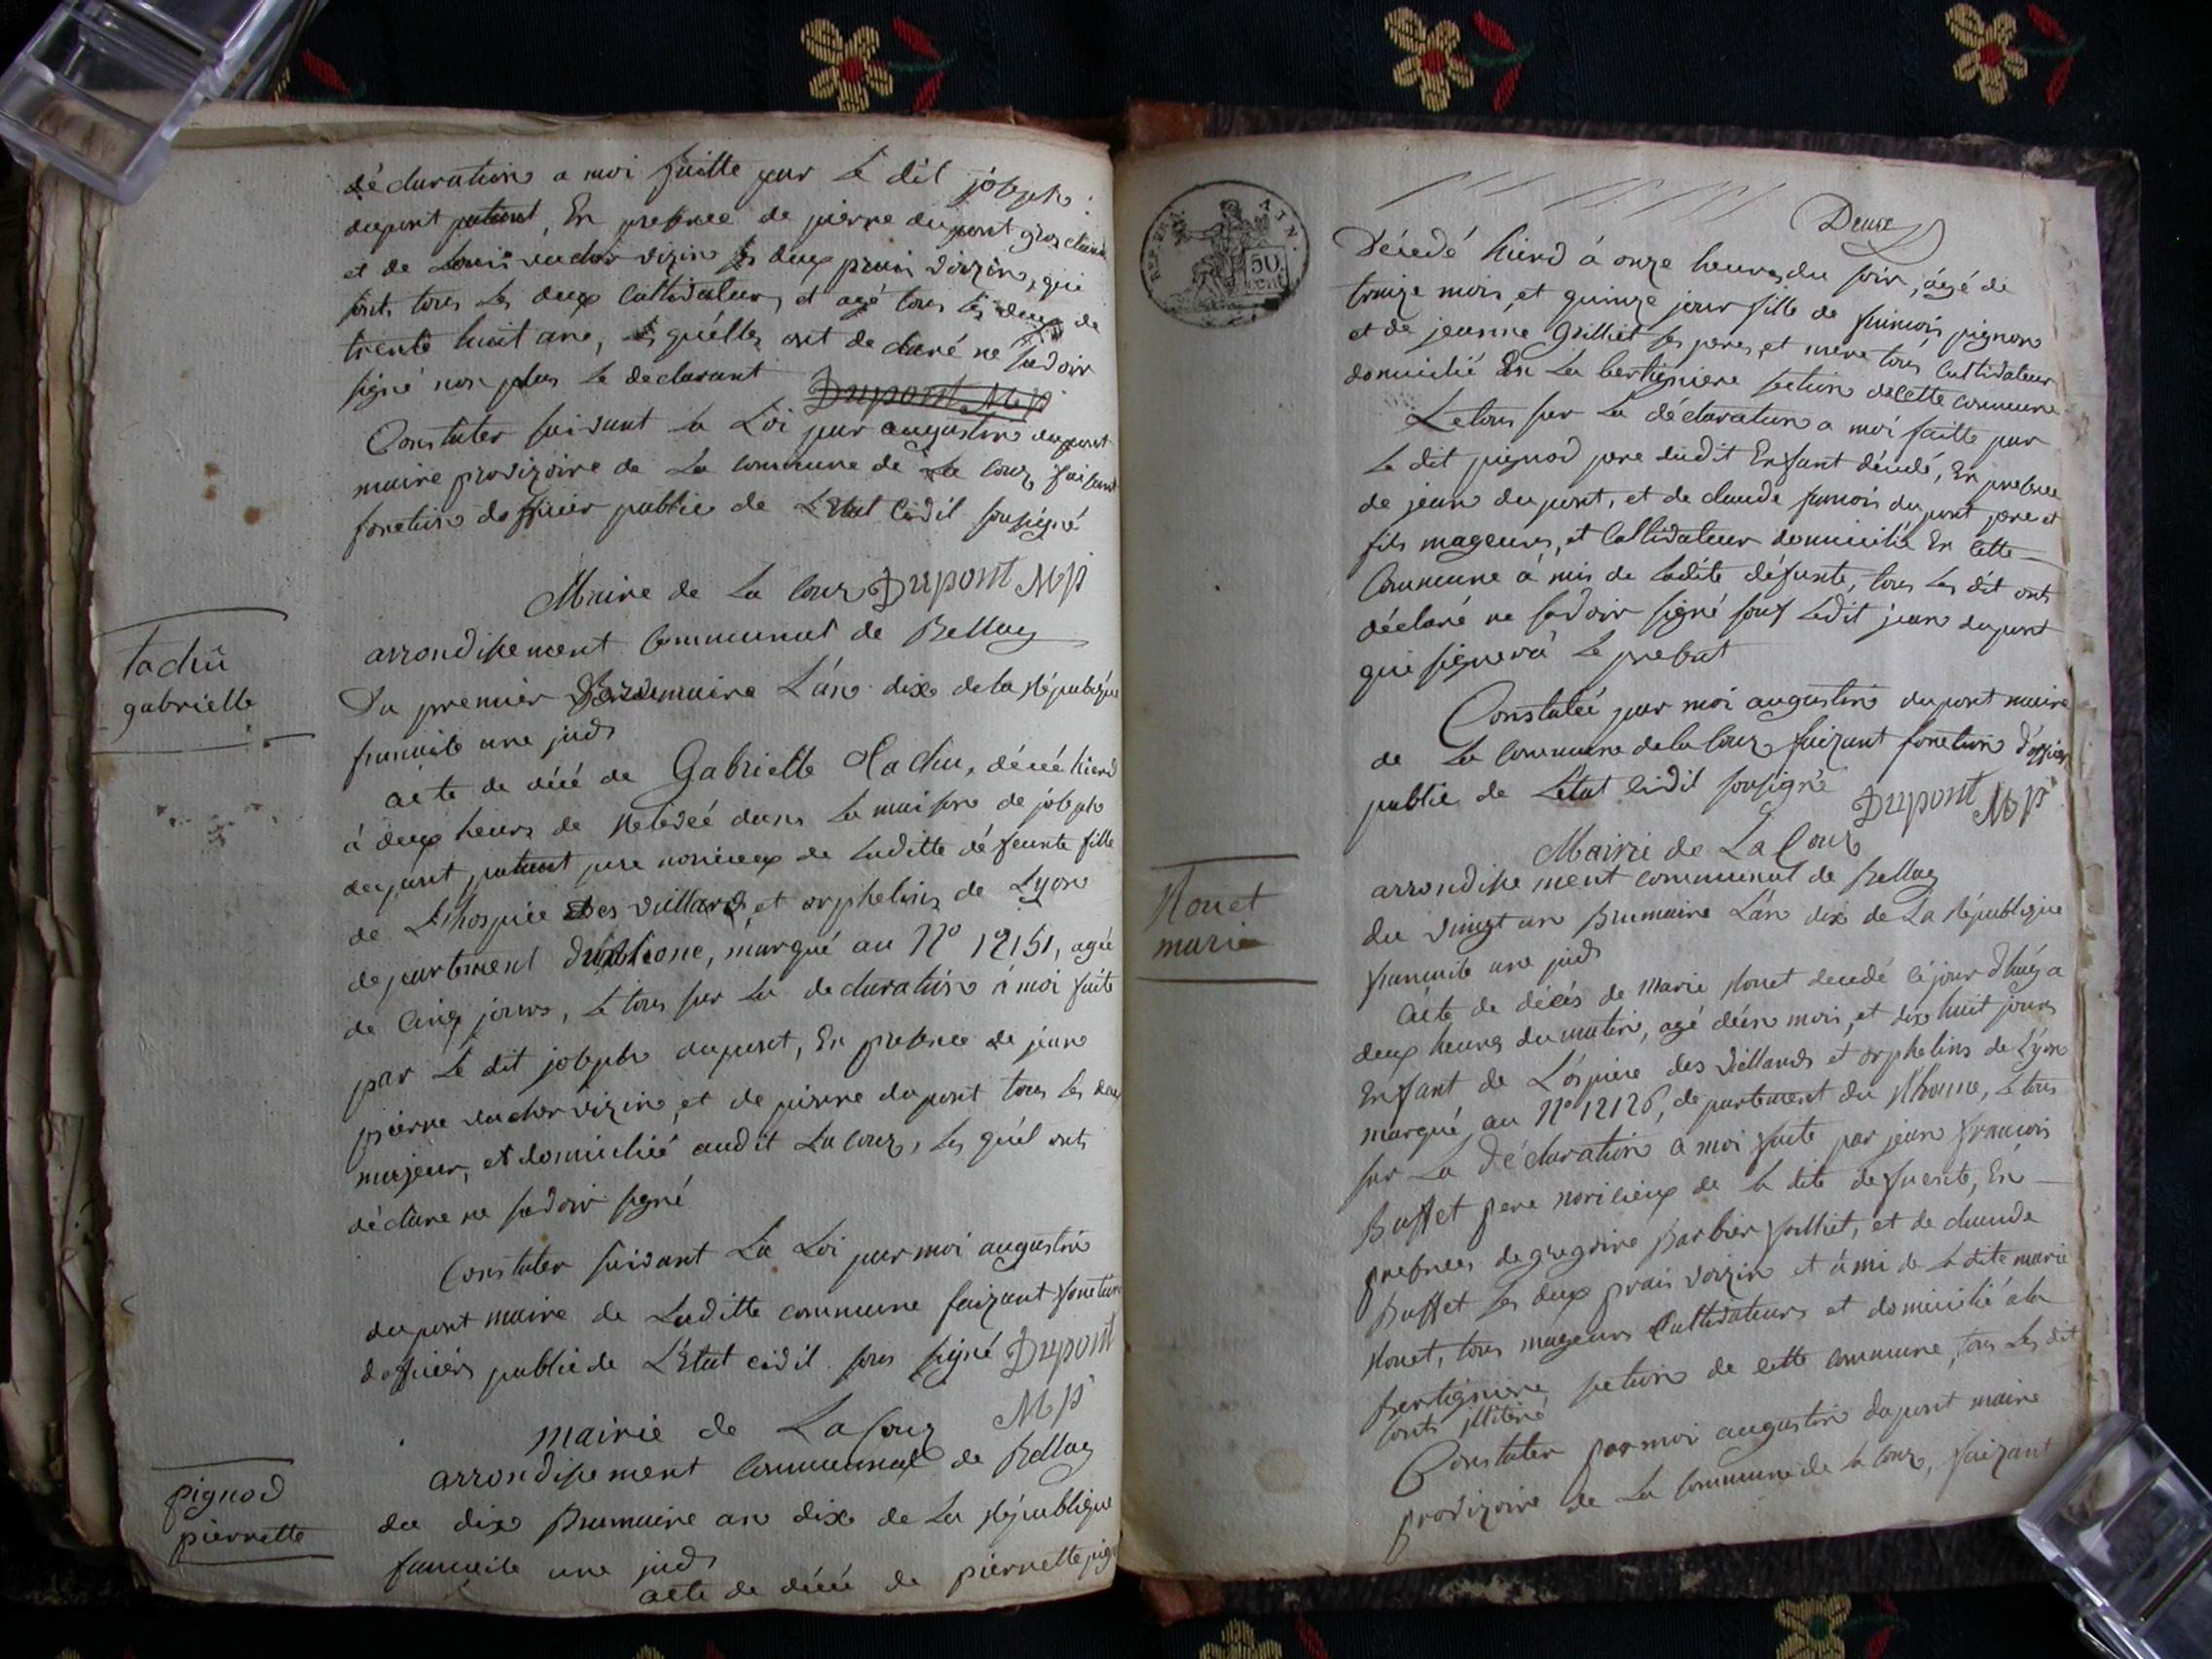 déclaration a moi faitte par le dit joseph
dupont patant, En presence de pierre dupont gros claude
et de Louis vucher vizin les deux prain voizin, qui
sont tous les deux Cultivateurs, et agé tous les deux de
trente huit ans, les quelles ont de claré ne savoir
signé non plus le declarant Dupont M p
Constater suivant la Loi par augustin dupont
maire provizoire de La commune de La Couz faisant
fonction dofficier public de L'Etat Civil sousigné
Dupont M p
Mairie de La Couz
arrondissement Communal de Bellay
tachu
gabrielle
Du premier Brumaire L'an dixe de la République
francaite une indi
acte de décé de Gabrielle Tachu, décéé hierd
à deux heurs de relevéé dans La maison de joseph
dupont patant pere noricieux de Laditte défeunte fille
de L'hospice des viellard, et orphelins de Lyon
departement du Rhone, marqué au N° 12151, agée
de Cinq jours, Le tous sur La declaration à moi faite
par Le dit joseph dupont, En presence de jean
pierre vucher vizin, et de pierre dupont tous les deux
majeur, et domicilié audit La couz, Les quel onts
déclare ne savoir signé
Constater suivant La Loi par moi augustin
dupont maire de Laditte commune faizant fonction
dofficiers public de L'Etat civil sous signé Dupont
M p
mairie de La Couz
arrondissement Communal de Bellay
pignod
pierrette
du dixe Brumaire an dixe de La République
francaite une indi
acte de décéé de pierrette pign
REP. FRA. 50 CENT.
Deux
Décédé hierd á onze heures du soir, ágé de
traize mois, et quinze jour fille de francois pignod
et de jeanne Grilliet ses peres, et mere tous Cultivateur
domicilié En La bertigniere section de cette commune
Le tous sur La déclaration a moi faitte par
Le dit pignod pere dudit Enfant décédé, En presence
de jean dupont, et de claude francois dupont pere et
fils mageurs, et Cultivateur domicilié En Cette
Commune á mis de ladite défunte, tous les dit onts
déclaré ne savoir signé souf Ledit jean dupont
qui signera Le present
Constatéé par moi augustin dupont maire
de La Commune de la Couz faizant fonction d'officier
public de L'etat civil sousigné Dupont M p
Mairie de La Couz
arrondisse ment communal de Bellay
Nouet
marie
du vingt un Brumaire L'an dixe de La République
francaite une indi
Acte de décés de Marie Nouet decedé ce jour dhuy a
deux heures du matin, agé dèun mois, et dixe huit jours
Enfant de L'ospice des Viellards et orphelins de Lyon
marqué au N° 12126, departement du Rhonne, Le tous
sur La déclaration a moi faite par jean francois
Buffet pere noricieux de la dite defuente, En
presences de gregoire Barbier folliet, et de claude
Buffet les deux prais voizin et ámi de la dite marie
Nouet, tous mageurs Cultivateurs et domicilié á la
bertigniere, section de cette commune, tous Les dit
sonts illitéré
Constater par moi augustin dupont maire
provizoire de La Commune de la Couz, faizant